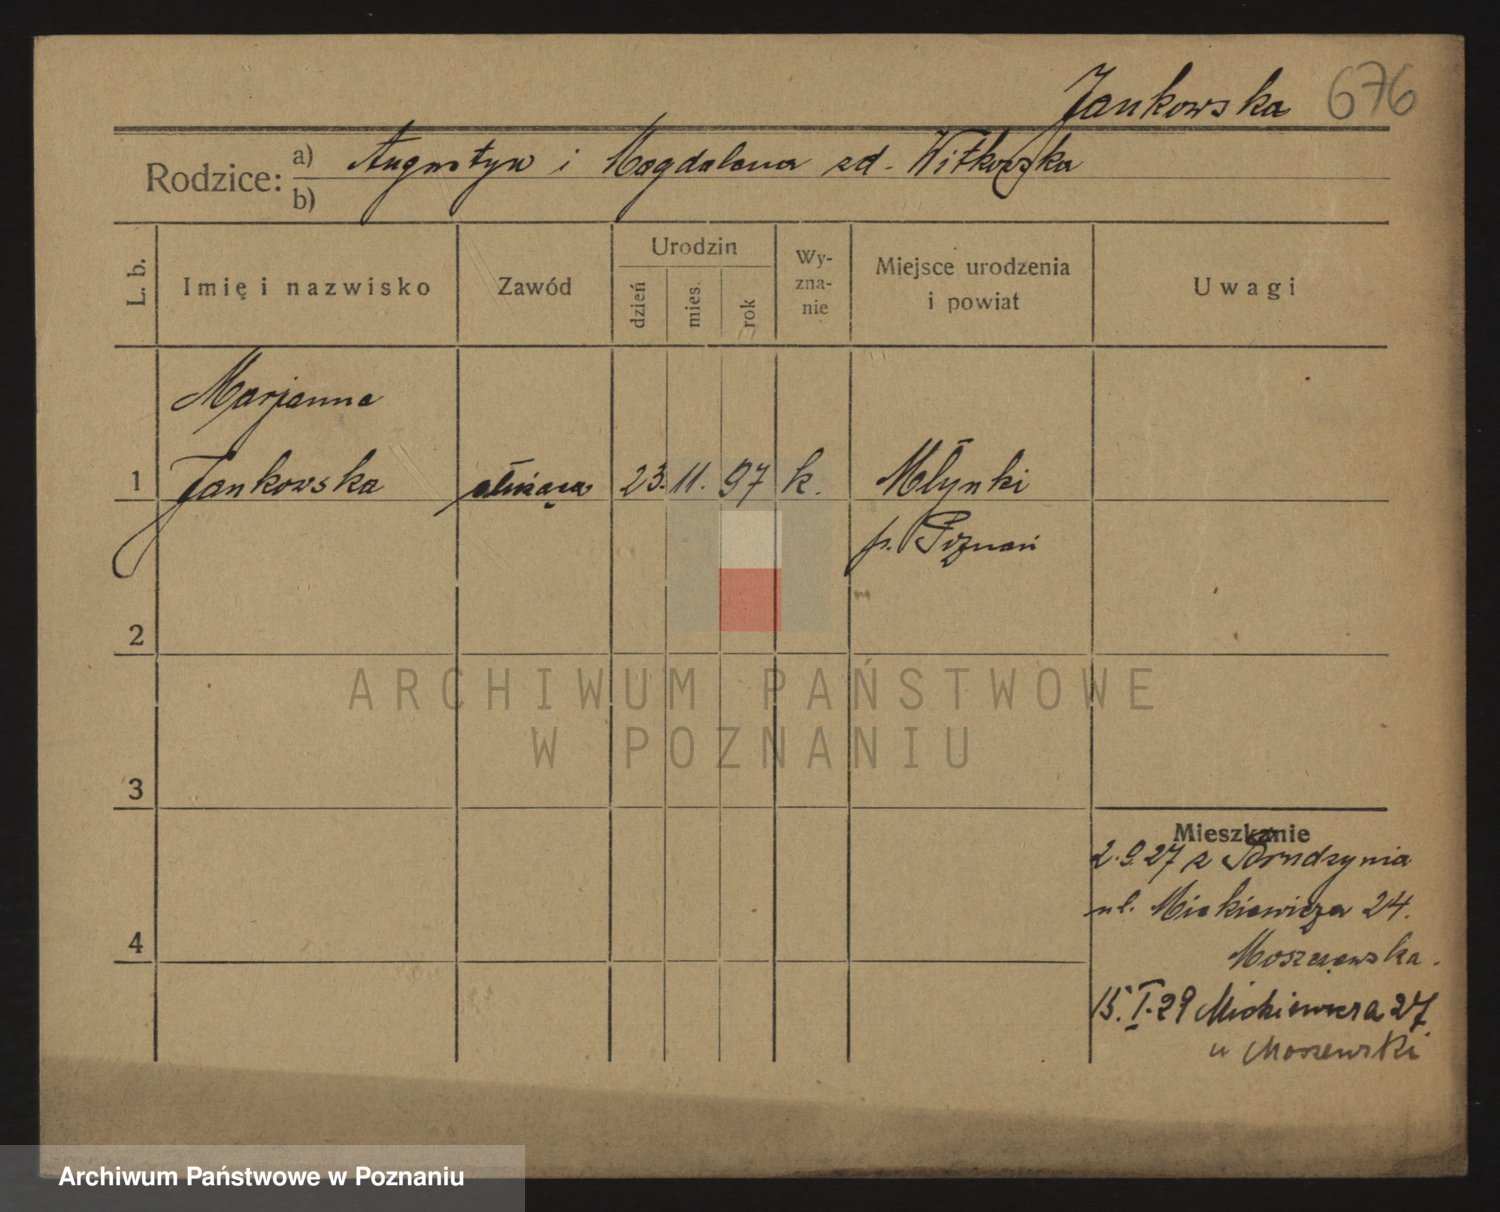 Jankowska 676
Rodzice: a) Augustyn i Magdalena zd. Witkowska
b)
L. b. Imię i nazwisko Zawód Urodzin dzień mies. rok Wy-zna-nie Miejsce urodzenia i powiat Uwagi
Marjanna
1 Jankowska służąca 23. 11. 97 k. Młynki
p. Poznań
2
ARCHIWUM PAŃSTWOWE
W POZNANIU
3
Mieszkanie
2.9.27 z
ul. Mickiewicza 24.
4
15. I. 29 Mickiewicza 27
u Moszewski
Archiwum Państwowe w Poznaniu